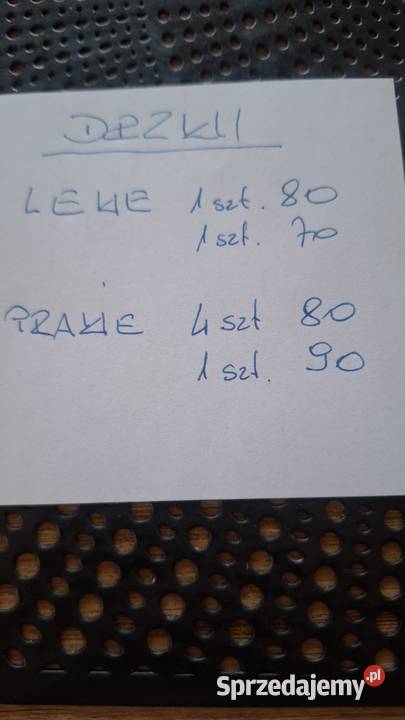 DRZWI
LEWE 1 szt. 80
1 szt. 70
PRAWE 4 szt 80
1 szt. 90
Sprzedajemy.pl